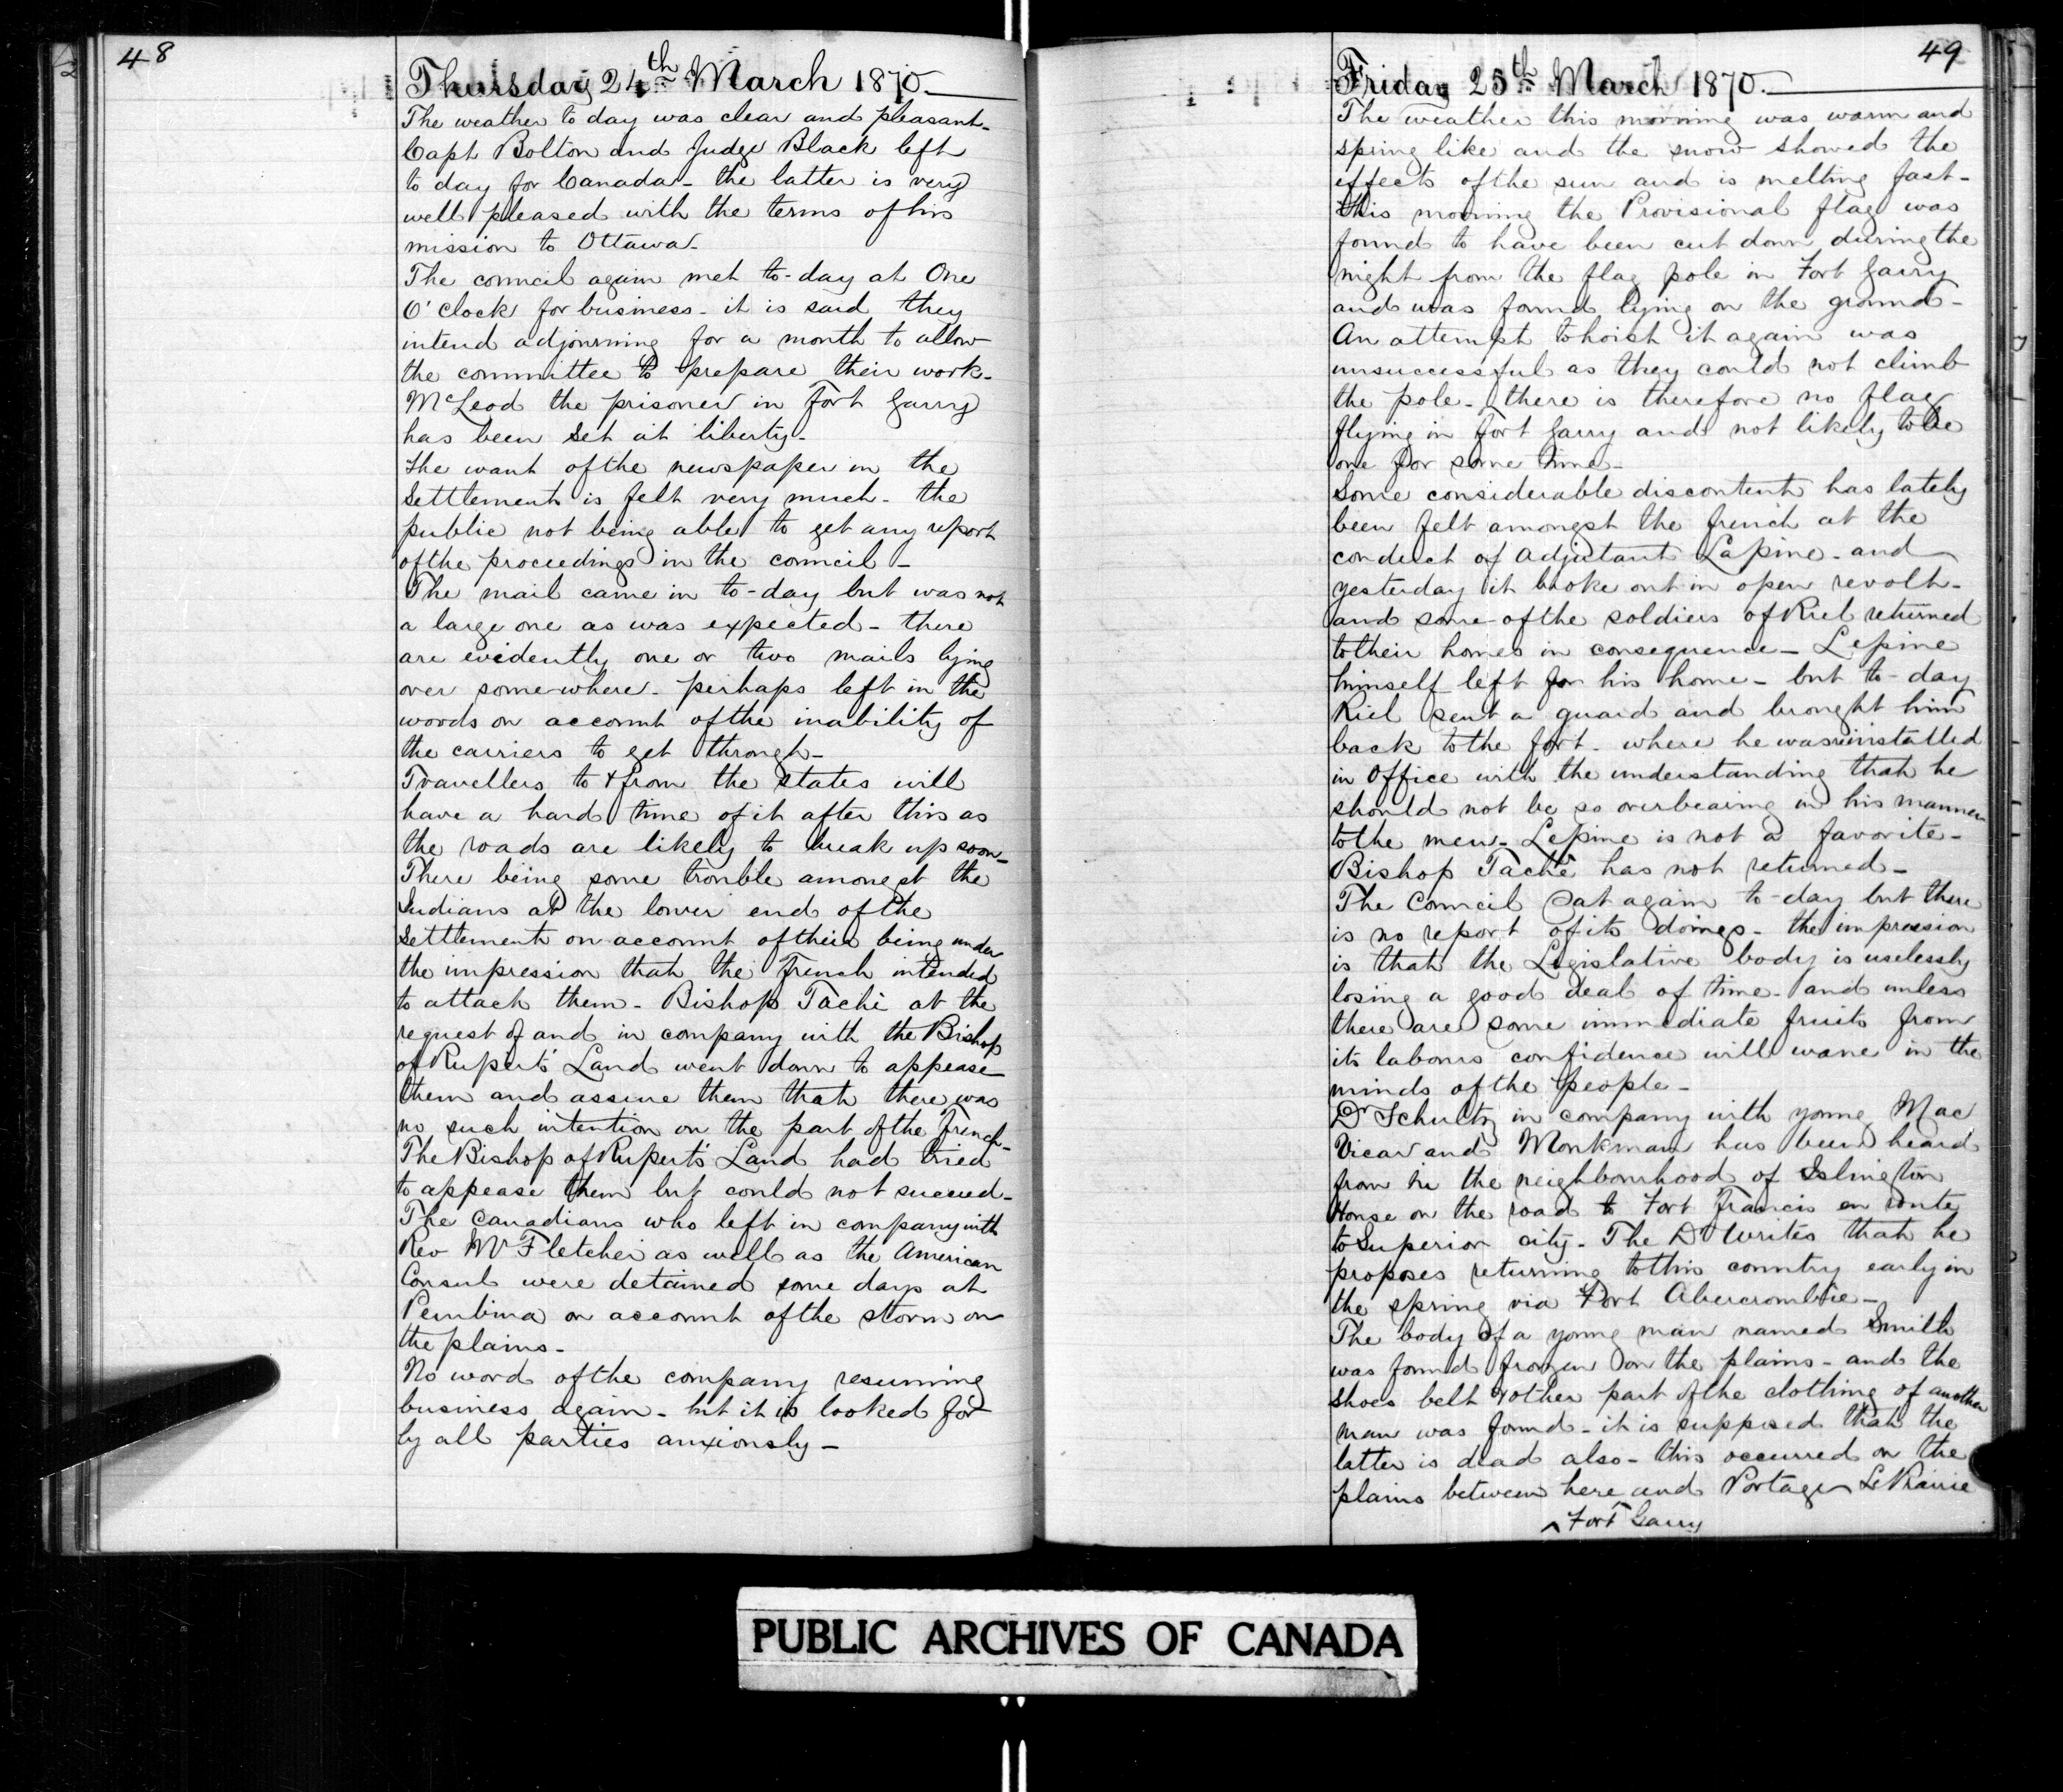 48
Thursday 24th March 1870.
The weather to day was clear and pleasant-
Capt Bolton and Judge Black left
to day for Canada- the latter is very
well pleased with the terms of his
mission to Ottawa-
The council again met to-day at One
O'clock for business- it is said they
intend adjourning for a month to allow
the committee to prepare their work-
McLeod the prisoner in Fort Garry
has been set at liberty-
The want of the newspaper in the
Settlement is felt very much- the
public not being able to get any report
of the proceedings in the council-
The mail came in to-day but was not
a large one as was expected- there
are evidently one or two mails lying
over somewhere- perhaps left in the
woods on account of the inability of
the carriers to get through-
Travellers to & from the States will
have a hard time of it after this as
the roads are likely to break up soon-
There being some trouble amongst the
Indians at the lower end of the
Settlement on account of their being under
the impression that the French intended
to attack them- Bishop Tache at the
request of and in company with the Bishop
of Rupert's Land went down to appease
them and assure them that there was
no such intention on the part of the French-
The Bishop of Rupert's Land had tried
to appease them but could not succeed-
The Canadians who left in company with
Rev Mr Fletcher as well as the American
Consul were detained some days at
Pembina on account of the storm on
the plains-
No word of the company resuming
business again- but it is looked for
by all parties anxiously-
49
Friday 25th March 1870.
The weather this morning was warm and
spring like and the snow showed the
effects of the sun and is melting fast-
this morning the Provisional flag was
found to have been cut down during the
night from the flag pole in Fort Garry
and was found lying on the ground-
An attempt to hoist it again was
unsuccessful as they could not climb
the pole- there is therefore no flag
flying in Fort Garry and not likely to be
one for some time-
Some considerable discontent has lately
been felt amongst the french at the
conduct of adjutant Lapine- and
yesterday it broke out in open revolt-
and some of the soldiers of Riel returned
to their homes in consequence- Lepine
himself left for his home- but to-day
Riel sent a guard and brought him
back to the fort- where he was reinstalled
in Office with the understanding that he
should not be so overbearing in his manner
to the men- Lepine is not a favorite-
Bishop Taché has not returned-
The Council Sat again to-day but there
is no report of its doings- the impression
is that the Legislative body is uselessly
losing a good deal of time- and unless
there are some immediate fruits from
its labours confidence will wane in the
minds of the people-
Dr Schultz in company with young Mac
Vicar and Monkman has been heard
from in the neighbourhood of Islington
House on the road to Fort Francis en route
to Superior city- The Dr writes that he
proposes returning to this country early in
the spring via Fort Abercrombie-
The body of a young man named Smith
was found frozen on the plains- and the
shoes belt & other part of the clothing of another
man was found- it is supposed that the
latter is dead also- this occurred on the
plains between here and Portage La Prairie
^ Fort Garry
PUBLIC ARCHIVES OF CANADA